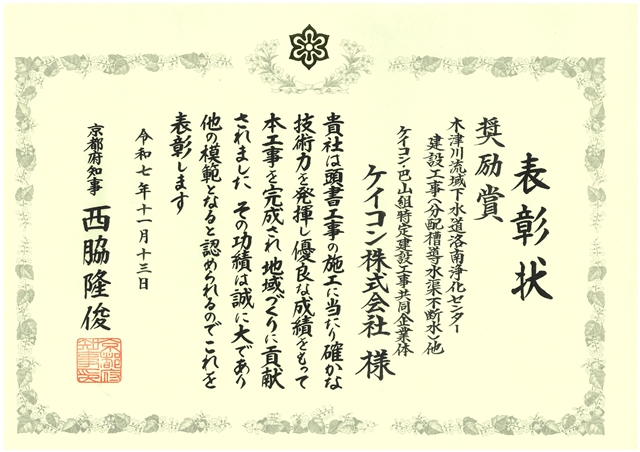 表彰状
奨励賞
木津川流域下水道洛南浄化センター
建設工事(分配槽導水渠不断水)他
ケイコン・巴山組特定建設工事共同企業体
ケイコン株式会社 様
貴社は頭書工事の施工に当たり確かな
技術力を発揮し優良な成績をもって
本工事を完成され 地域づくりに貢献
されました その功績は誠に大であり
他の模範となると認められるので これを
表彰します
令和七年十一月十三日
京都府知事 西脇隆俊
京都府
知事之印